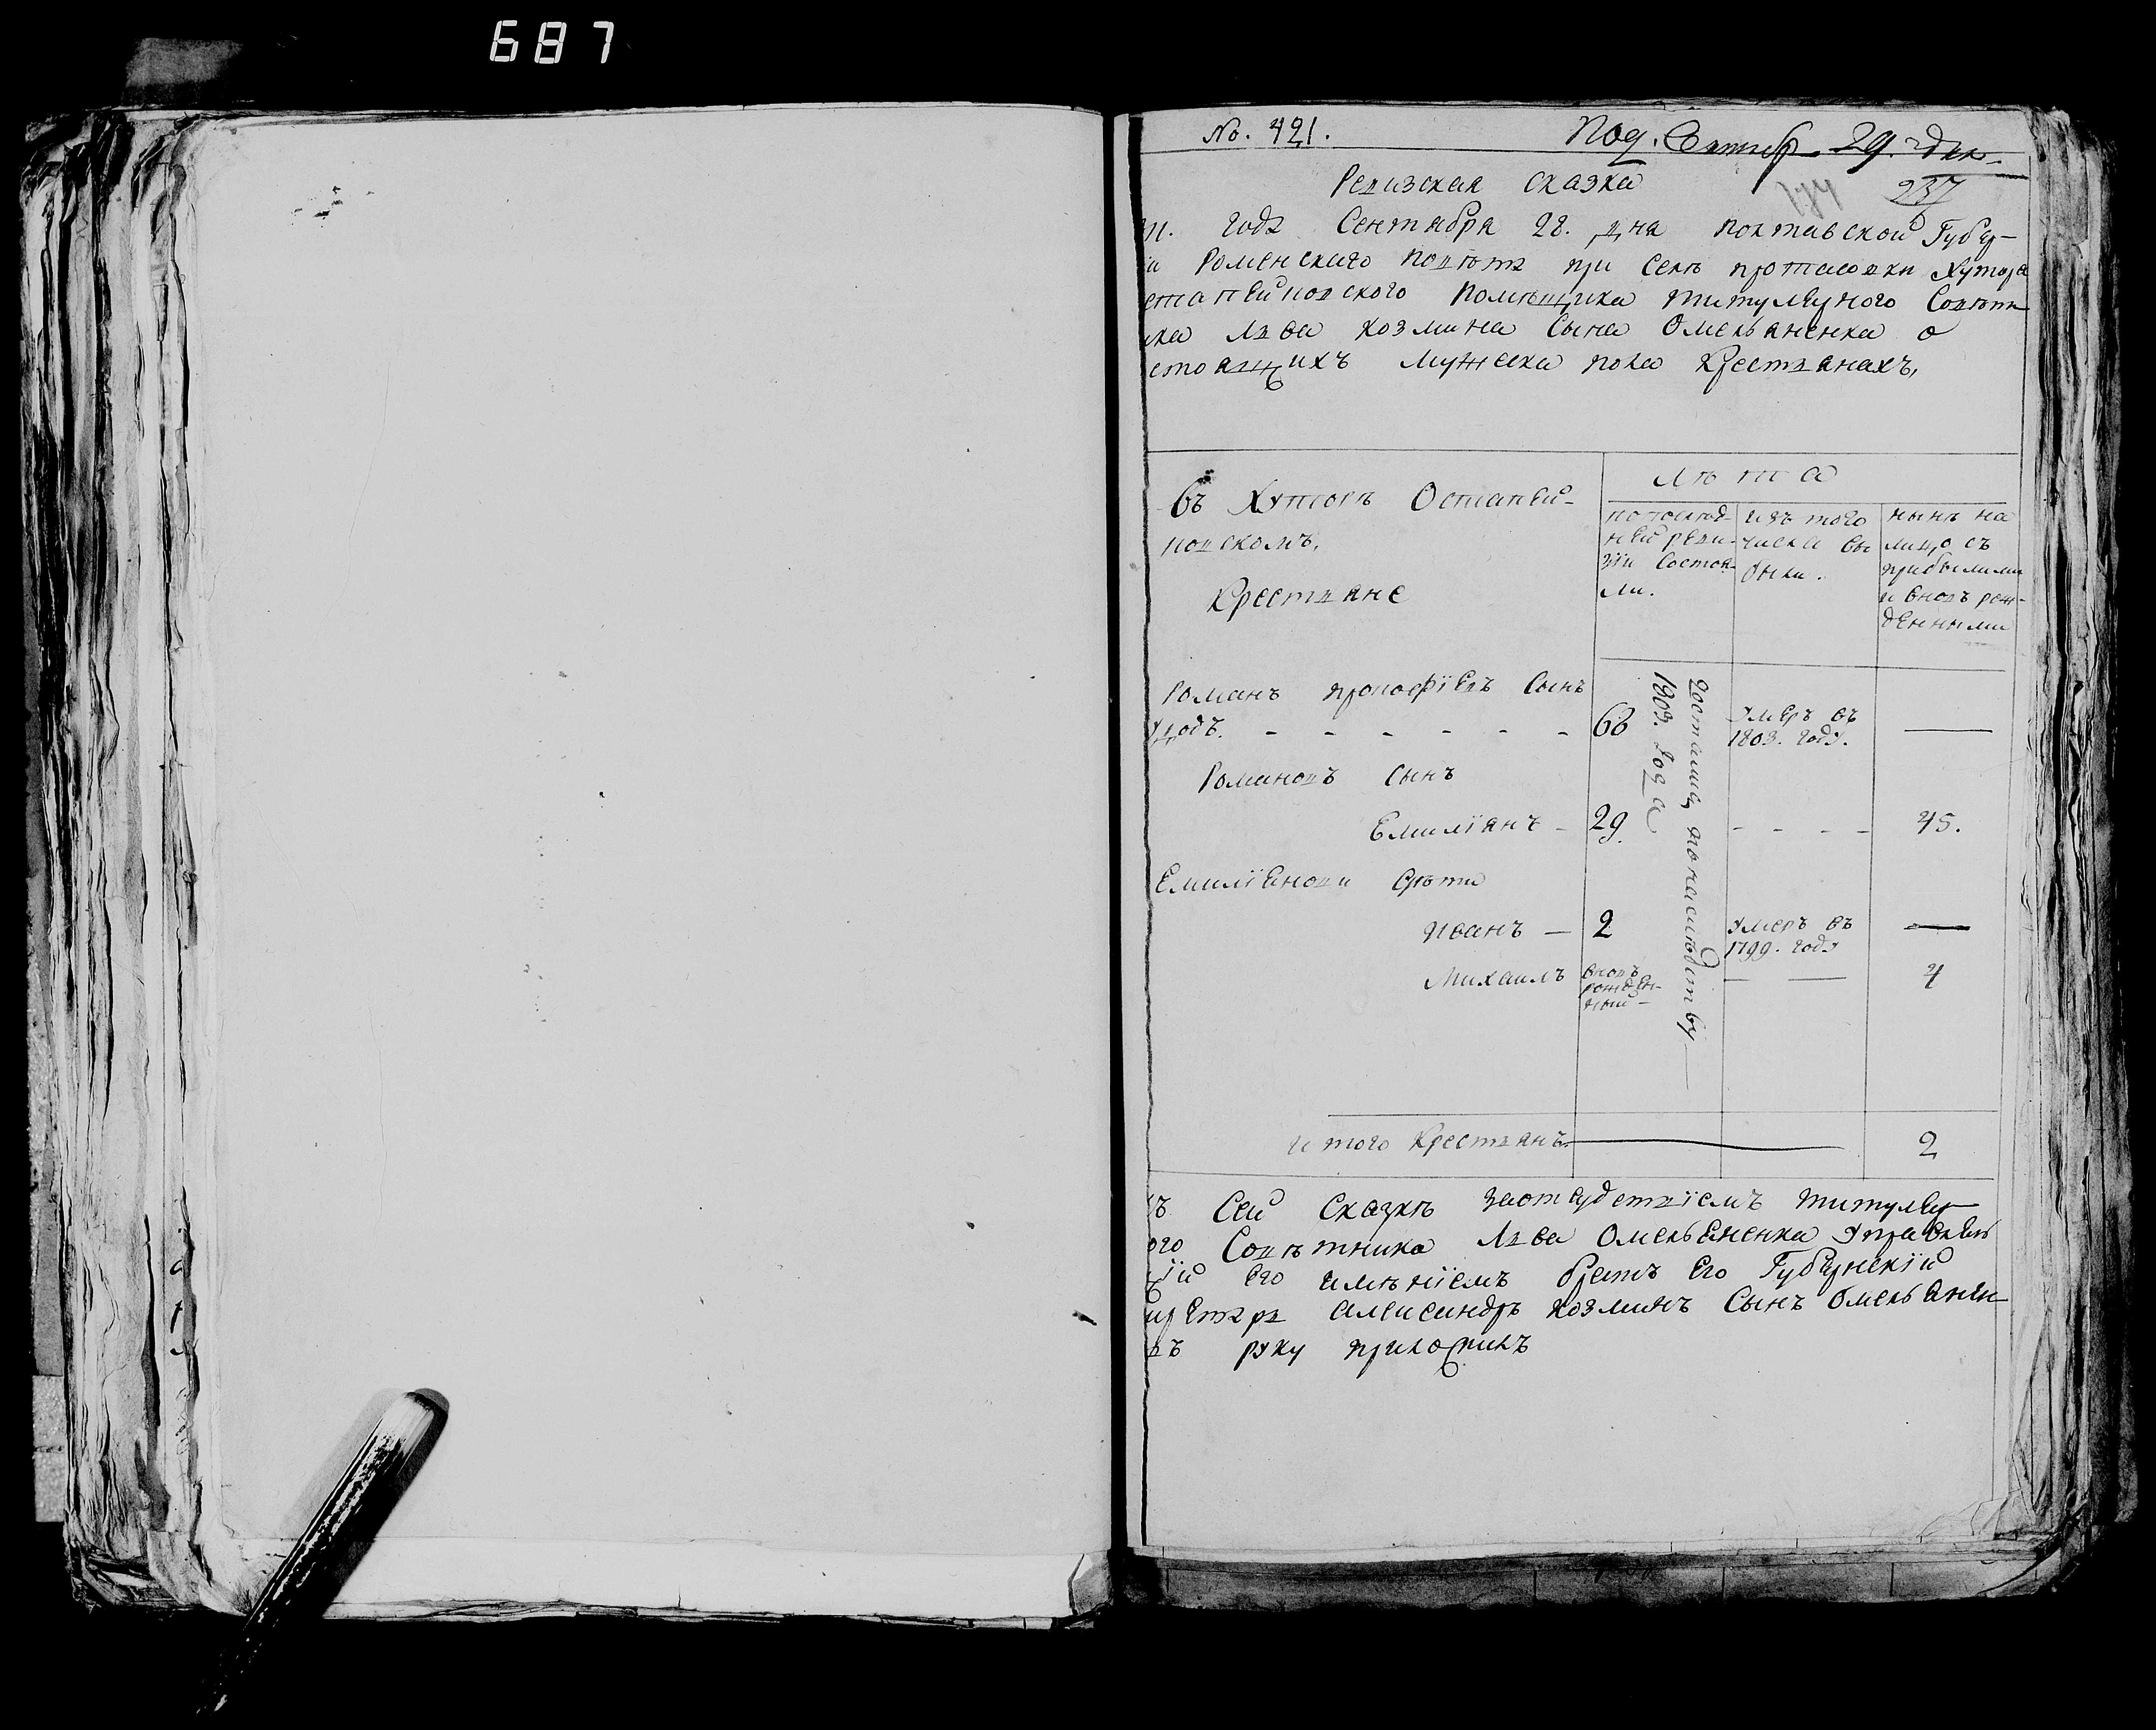 687
No. 421.
Под. Сентябр 29. дня
Ревизская сказка
237
года Сентября 28. дня полтавской Губер-
Роменского повѣта при селѣ протасовки Хутора
стапеиновского помѣщика титулярного Совѣтн
ика Лва козмина Сына Омельяненка о
стоящихъ мужеска пола крестянахъ,
Въ Хуторѣ Остапеи-
новскомъ,
Крестяне
лѣта
по послѣд-
ней реви-
зіи состоя-
ли.
изъ того
числа вы
были.
нынѣ на
лицо съ
прибылими
и вновъ рож-
денными
Романъ прокофіевъ Сынъ
удодъ. - - - - - - 68
умеръ въ
1803. году.
—
Романовъ сынъ
Емиліянъ - 29. - - - - 45.
Емиліянови дѣти
иванъ — 2
умеръ въ
1799. году
—
Михаилъ
вновъ
рожден-
ный —
— — 4
достались по наслѣдству
1803. года
итого крестянъ — 2
Къ Сей Сказкѣ заотсудствіемъ титуляр
ого Совѣтника Лва Омельяненка управляю
щій его имѣніемъ братъ его Губернскій
Александръ козминъ Сынъ Омельянен
ръку приложилъ